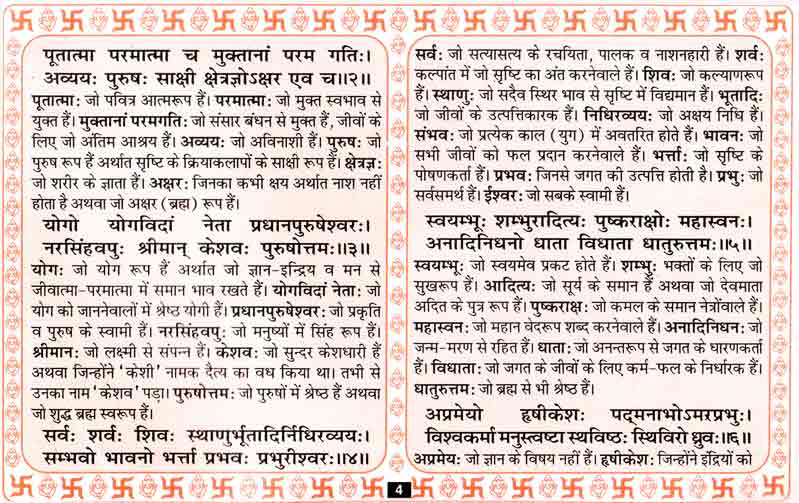 पूतात्मा परमात्मा च मुक्तानां परम गतिः।
अव्ययः पुरुषः साक्षी क्षेत्रज्ञोऽक्षर एव च॥२॥
पूतात्माः जो पवित्र आत्मरूप हैं। परमात्माः जो मुक्त स्वभाव से
युक्त हैं। मुक्तानां परमगतिः जो संसार बंधन से मुक्त हैं, जीवों के
लिए जो अंतिम आश्रय हैं। अव्ययः जो अविनाशी हैं। पुरुषः जो
पुरुष रूप हैं अर्थात सृष्टि के क्रियाकलापों के साक्षी रूप हैं। क्षेत्रज्ञः
जो शरीर के ज्ञाता हैं। अक्षरः जिनका कभी क्षय अर्थात नाश नहीं
होता है अथवा जो अक्षर (ब्रह्म) रूप हैं।
योगो योगविदां नेता प्रधानपुरुषेश्वरः।
नरसिंहवपुः श्रीमान् केशवः पुरुषोत्तमः॥३॥
योगः जो योग रूप हैं अर्थात जो ज्ञान-इन्द्रिय व मन से
जीवात्मा-परमात्मा में समान भाव रखते हैं। योगविदां नेताः जो
योग को जाननेवालों में श्रेष्ठ योगी हैं। प्रधानपुरुषेश्वरः जो प्रकृति
व पुरुष के स्वामी हैं। नरसिंहवपुः जो मनुष्यों में सिंह रूप हैं।
श्रीमानः जो लक्ष्मी से संपन्न हैं। केशवः जो सुन्दर केशधारी हैं
अथवा जिन्होंने 'केशी' नामक दैत्य का वध किया था। तभी से
उनका नाम 'केशव' पड़ा। पुरुषोत्तमः जो पुरुषों में श्रेष्ठ हैं अथवा
जो शुद्ध ब्रह्म स्वरूप हैं।
सर्वः शर्वः शिवः स्थाणुर्भूतादिर्निधिरव्ययः।
सम्भवो भावनो भर्त्ता प्रभवः प्रभुरीश्वरः॥४॥
सर्वः जो सत्यासत्य के रचयिता, पालक व नाशनहारी हैं। शर्वः
कल्पांत में जो सृष्टि का अंत करनेवाले हैं। शिवः जो कल्याणरूप
हैं। स्थाणुः जो सदैव स्थिर भाव से सृष्टि में विद्यमान हैं। भूतादिः
जो जीवों के उत्पत्तिकारक हैं। निधिरव्ययः जो अक्षय निधि हैं।
संभवः जो प्रत्येक काल (युग) में अवतरित होते हैं। भावनः जो
सभी जीवों को फल प्रदान करनेवाले हैं। भर्त्ताः जो सृष्टि के
पोषणकर्ता हैं। प्रभवः जिनसे जगत की उत्पत्ति होती है। प्रभुः जो
सर्वसमर्थ हैं। ईश्वरः जो सबके स्वामी हैं।
स्वयम्भूः शम्भुरादित्यः पुष्कराक्षोः महास्वनः।
अनादिनिधनो धाता विधाता धातुरुत्तमः॥५॥
स्वयम्भूः जो स्वयमेव प्रकट होते हैं। शम्भुः भक्तों के लिए जो
सुखरूप हैं। आदित्यः जो सूर्य के समान हैं अथवा जो देवमाता
अदित के पुत्र रूप हैं। पुष्कराक्षः जो कमल के समान नेत्रोंवाले हैं।
महास्वनः जो महान वेदरूप शब्द करनेवाले हैं। अनादिनिधनः जो
जन्म-मरण से रहित हैं। धाताः जो अनन्तरूप से जगत के धारणकर्ता
हैं। विधाताः जो जगत के जीवों के लिए कर्म-फल के निर्धारक हैं।
धातुरुत्तमः जो ब्रह्म से भी श्रेष्ठ हैं।
अप्रमेयो हृषीकेशः पद्मनाभोऽमरप्रभुः।
विश्वकर्मा मनुस्त्वष्टा स्थविष्ठः स्थिविरो ध्रुवः॥६॥
अप्रमेयः जो ज्ञान के विषय नहीं हैं। हृषीकेशः जिन्होंने इंद्रियों को
4